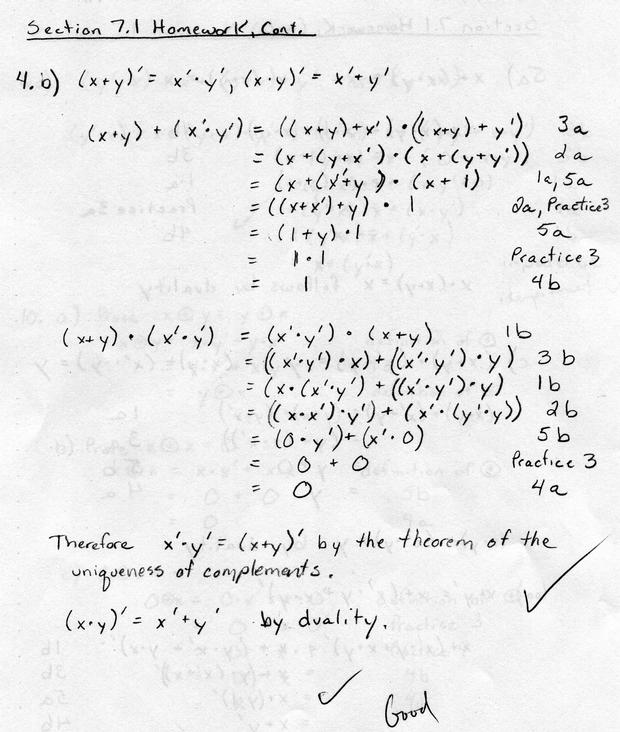 Section 7.1 Homework, Cont.
4. b) (x+y)' = x'·y', (x·y)' = x'+y'
(x+y) + (x'·y') = ((x+y)+x')·((x+y)+y') 3a
= (x+(y+x')·(x+(y+y')) 2a
= (x+(x'+y))·(x+1) 1a, 5a
= ((x+x')+y)·1 2a, Practice 3
= (1+y)·1 5a
= 1·1 Practice 3
= 1 4b
(x+y)·(x'·y') = (x'·y')·(x+y) 1b
= ((x'·y')·x)+((x'·y')·y) 3b
= (x·(x'·y')+((x'·y')·y) 1b
= ((x·x')·y')+(x'·(y'·y)) 2b
= (0·y')+(x'·0) 5b
= 0+0 Practice 3
= 0 4a
Therefore x'·y' = (x+y)' by the theorem of the
uniqueness of complements.
(x·y)' = x'+y' by duality.
Good